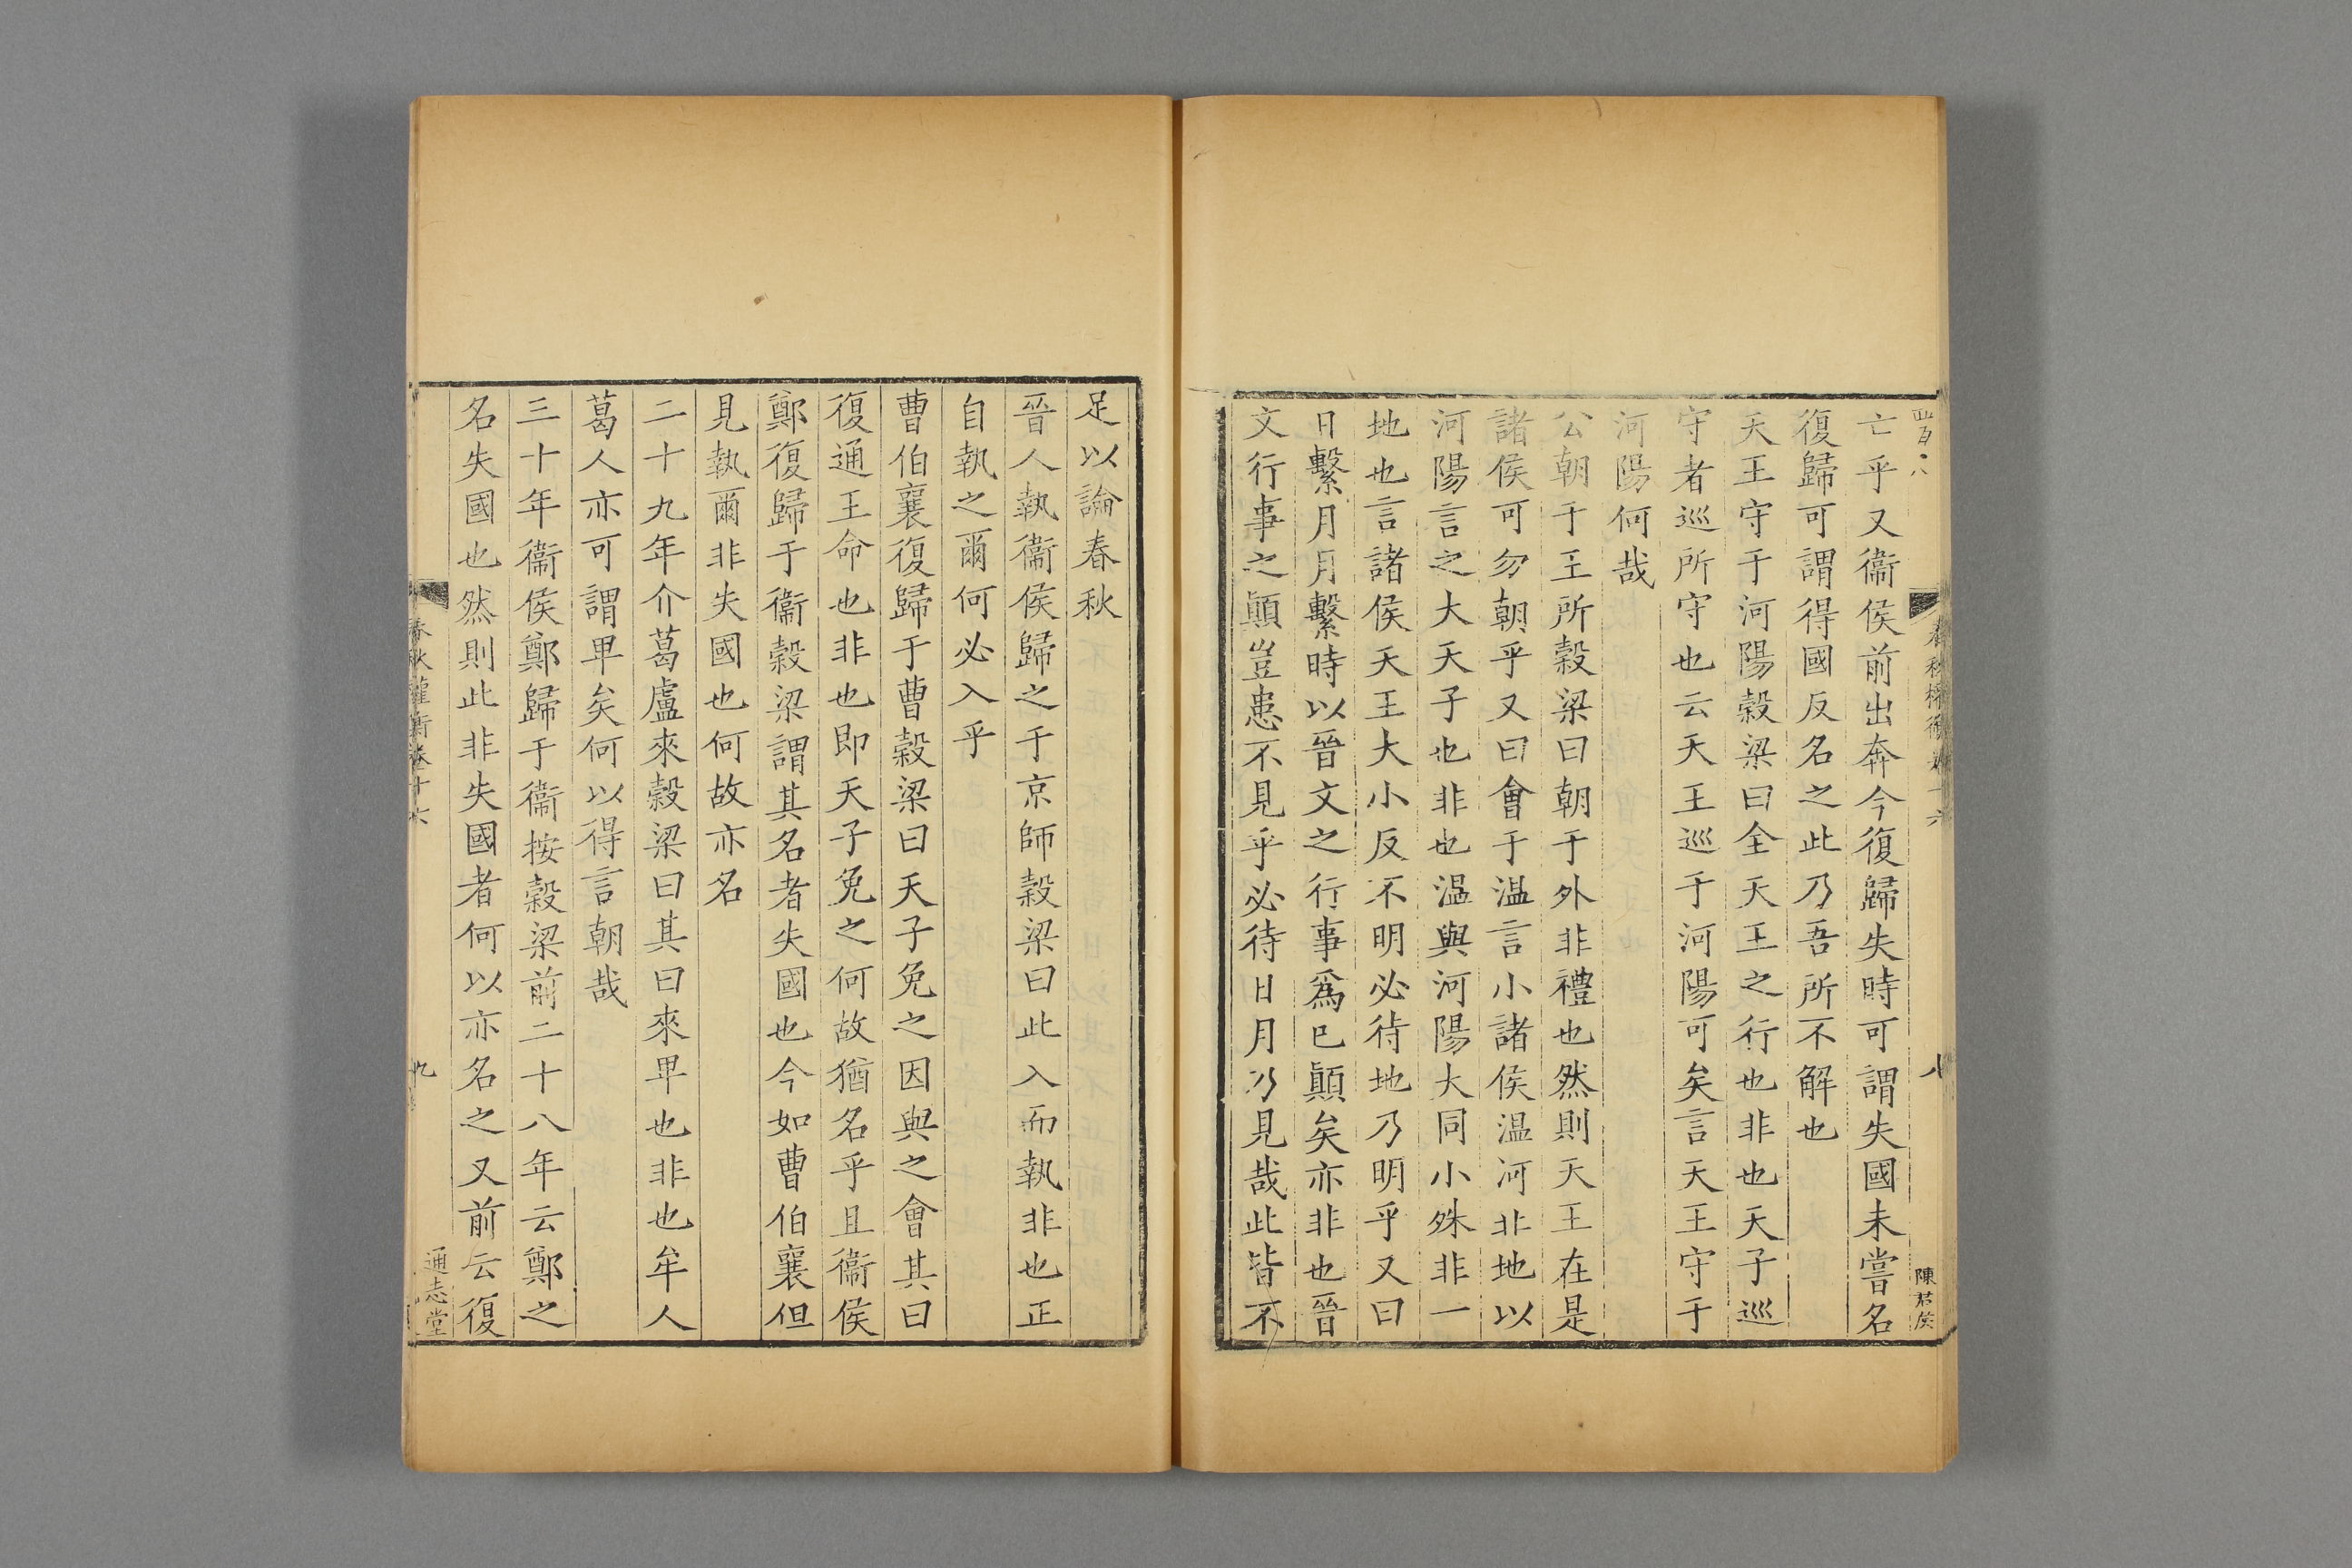 亡乎又衞侯前出奔今復歸失時可謂失國未嘗名
復歸可謂得國反名之此乃吾所不解也
天王守于河陽穀梁曰全天王之行也非也天子巡
守者巡所守也云天王巡于河陽可矣言天王守于
河陽何哉
公朝于王所穀梁曰朝于外非禮也然則天王在是
諸侯可勿朝乎又曰會于溫言小諸侯溫河非地以
河陽言之大天子也非也溫與河陽大同小殊非一
地也言諸侯天王大小反不明必待地乃明乎又曰
日繫月月繫時以晉文之行事爲已顚矣亦非也晉
文行事之顚豈患不見乎必待日月乃見哉此皆不
陳君侯
足以論春秋
晉人執衞侯歸之于京師穀梁曰此入而執非也正
自執之爾何必入乎
曹伯襄復歸于曹穀梁曰天子免之因與之會其曰
復通王命也非也即天子免之何故猶名乎且衞侯
鄭復歸于衞穀梁謂其名者失國也今如曹伯襄但
見執爾非失國也何故亦名
二十九年介葛盧來穀梁曰其曰來卑也非也牟人
葛人亦可謂卑矣何以得言朝哉
三十年衞侯鄭歸于衞按穀梁前二十八年云鄭之
名失國也然則此非失國者何以亦名之又前云復
春秋權衡卷十六
九
通志堂